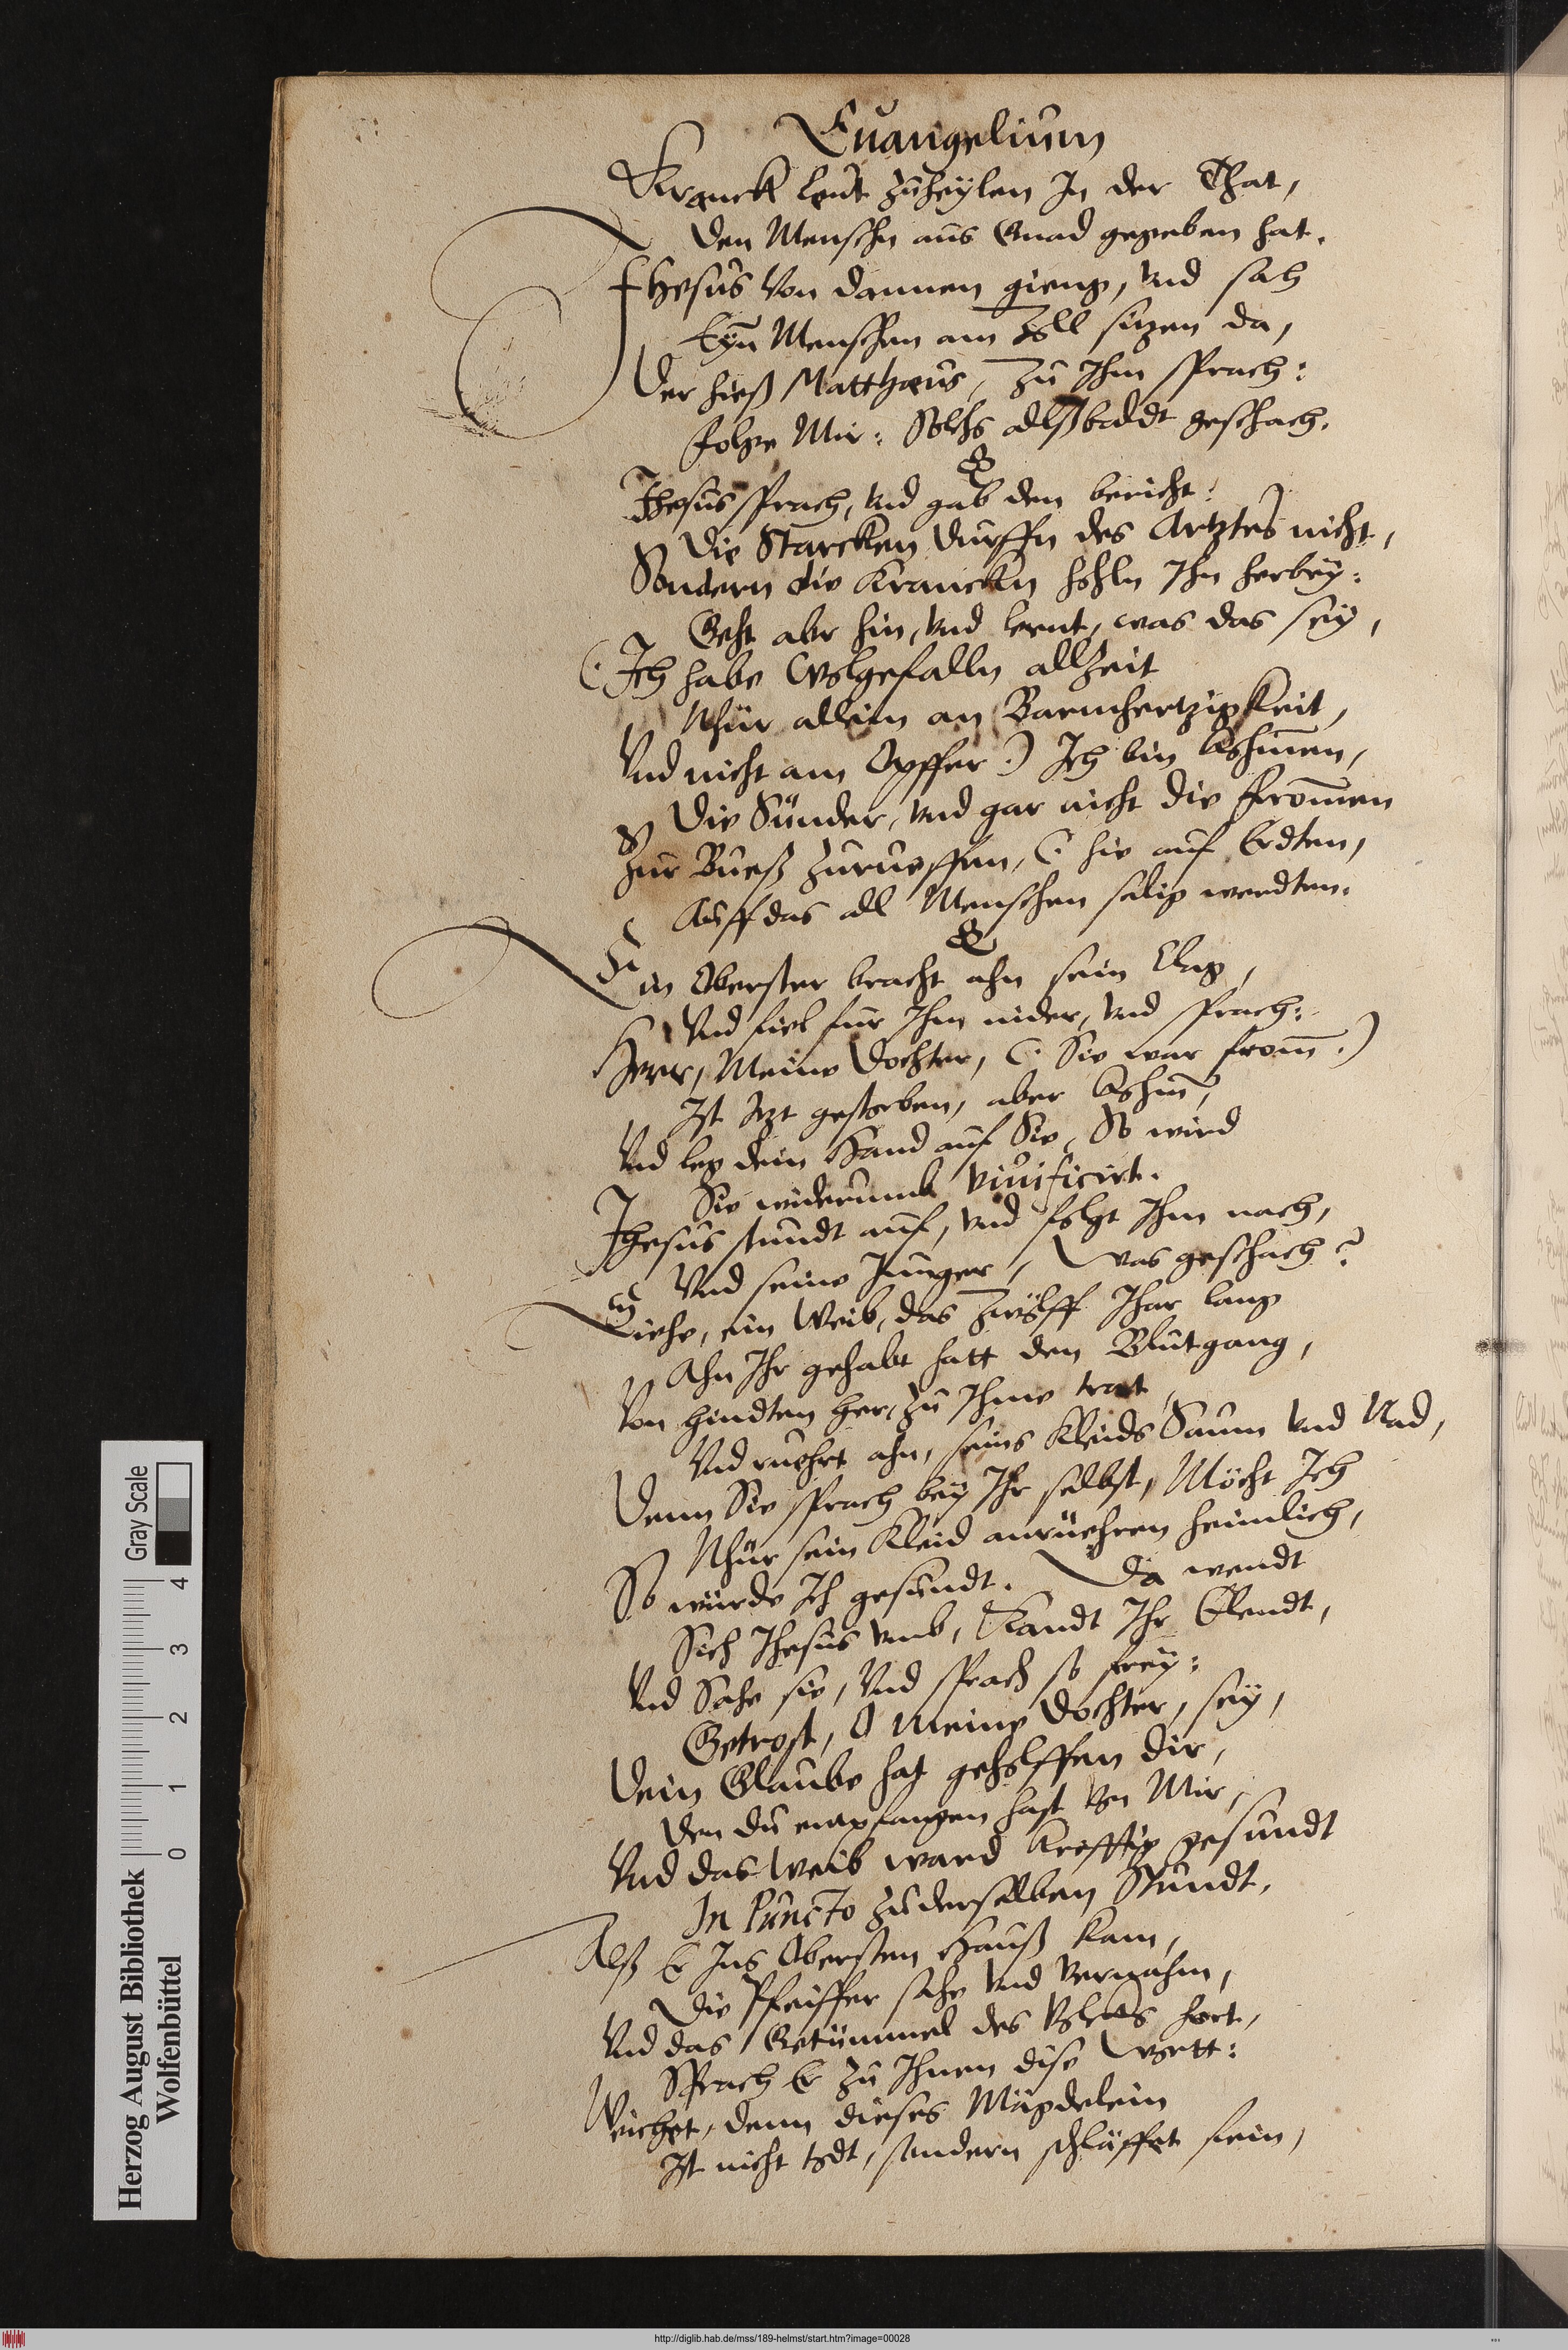 Euangelium
Kranck leut zuheÿlen In der That,
Den Menschn aus Gnad gegeben hat.
Jhesus von dannen gieng, vnd sah
Eÿn Menschen am Zoll sizen da,
Der hieß Matthæus, Zu Ihm sprach:
Folge Mir: Solchs alßbaldt geschach.
Jhesus sprach, vnd gab den bericht:
Die Starcken durffn des Artztes nicht,
Sondern die Kranckn hohln Ihn herbeÿ:
Geht abr hin, vnd lernt, was das seÿ,
(: Ich habe Wolgefalln allzeit
Nhŭr allein an Barmhertzigkeit,
Vnd nicht am Opffer :) Ich bin kohm̄en,
Die Sünder, vnd gar nicht die from̄en
Zur Bueß zurueffen, (: hie auf Erdten,
Auff das all Menschen selig werdten.
Ein Oberster bracht ahn sein Clag,
Vnd fiel fur Ihm nider, vnd sprach:
Herr, Meine Dochter, (: Sie war from̄ :)
Ist Itzt gestorben, aber kohm̄,
Vnd leg dein Hand auf Sie, So wird
Sie widerumb viuificirt.
Jhesus stundt auf, vnd folgt Ihm nach,
Vnd seine Junger, Was geschach?
Siehe, ein Weib, das Zwölff Jhar lang
Ahn Ihr gehabt hatt den Blutgang,
Von hindten her, zu Ihme tratt,
Vnd ruehrt ahn, seins Kleids Saum vnd Nad,
Denn Sie sprach beÿ Ihr selbst, Möcht Ich
Nhŭr sein Kleid anrüehren heimlich,
So würde Ich gesundt. Da wendt
Sich Jhesus vmb, Kandt Ihr Elendt,
Vnd Sahe sie, Vnd sprach so freÿ:
Getrost, O Meine Dochter, seÿ,
Dein Glaube hat geholffen dir,
Den du empfangen hast von Mir,
Vnd das Weib ward krefftig gesundt
In Puncto zu derselben Stundt.
Alß Er Ins Obersten Hauß kam,
Die Pfeiffer sahe vnd vernahm,
Vnd das Getümmel des Volcks hort,
Sprach Er zu Ihnen dise Wortt:
Weichet, denn dieses Mägdelein
Ist nicht todt, sondern schläffet fein,
Herzog August Bibliothek
Wolfenbüttel
Gray Scale
0 1 2 3 4
http://diglib.hab.de/mss/189-helmst/start.htm?image=00028